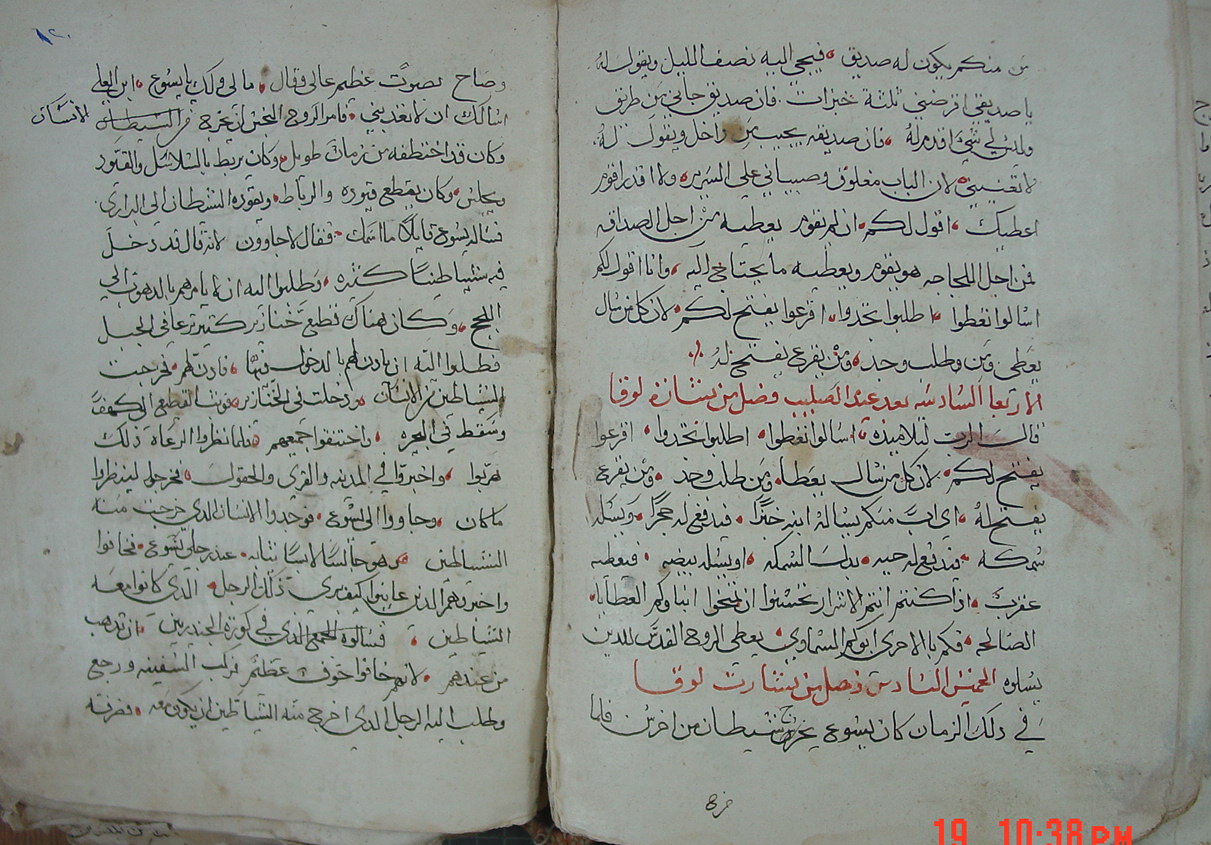 من منكم يكون له صديق فيجي اليه نصف الليل ويقول له
يا صديقي اقرضني ثلثة خبزات فان صديق جاني من طريق
وليس لي شي اقدم له فان صديقه يجيب من داخل ويقول له
لا تعنيني لان الباب مغلوق وصبياني على السرير ولا اقدر اقوم
اعطيك اقول لكم ان لم يقوم يعطيه من اجل الصداقه
فمن اجل اللجاجه هو يقوم ويعطيه ما يحتاج اليه وانا اقول لكم
اسالوا تعطوا اطلبوا تجدوا اقرعوا يفتح لكم لان كل من سال
يعطى ومن طلب وجد ومن يقرع يفتح له
الاربعا السادسه بعد عيد الصليب فصل من بشارة لوقا
قال الرب لتلاميذه اسالوا تعطوا اطلبوا تجدوا اقرعوا
يفتح لكم لان كل من سال يعطا ومن طلب وجد ومن يقرع
يفتح له اي اب منكم يساله ابنه خبزا فيدفع له حجرا ويسله
سمكه فيدفع له حيه بدل السمكه او يسله بيضه فيعطيه
عقرب اذا كنتم انتم الاشرار تحسنوا ان تمنحوا ابناوكم العطايا
الصالحه فكم بالاحرى ابوكم السماوي يعطي الروح القدس للذين
يسلوه الخميس السادس فصل من بشارت لوقا
في ذلك الزمان كان يسوع يخرج شيطان من اخرس فلما
خرج
١٢٠
وصاح بصوت عظم عالي وقال مالي ولك يا يسوع ابن العلي
اسالك ان لا تعذبني فامر الروح النجس ان يخرج من الشيطان
الانسان
وكان قد اختطفه من زمان طويل وكان يربط بالسلاسل والقيود
ويحبس وكان يقطع قيوده والرباط ويقوده الشيطان الى البراري
فساله يسوع قايلا ما اسمك فقال لاجاوون لانه قال قد دخل
فيه شياطينا كثيره وطلبوا اليه ان لا يامرهم بالدهوب الى
اللجج وكان هناك قطيع خنازير كثير ترعا في الجبل
فطلبوا اليه ان يادن لهم بالدخول فيها فادن لهم فخرجت
الشياطين من الانسان ودخلت في الخنازير فوثب القطيع الى كهف
وسقط في البحره واختنقوا جميعهم فلما نظروا الرعاه ذلك
هربوا واخبروا في المدينه والقرى والحقول فخرجوا لينظروا
ما كان وجاووا الى يسوع فوجدوا الانسان الدي خرجت منه
الشياطين وهو جالسا لابسا ثيابه عند رجلي يسوع فخافوا
واخبروهم الدين عاينوا كيف بري ذلك الرجل الدي كانوا معه
الشياطين فسالوه الجمع الدي في كورة الجدريين ان يدهب
من عندهم لانهم خافوا خوف عظيم فركب السفينه ورجع
وطلب اليه الرجل الدي اخرج منه الشياطين ان يكون معه فصرفه
19 10:38 PM